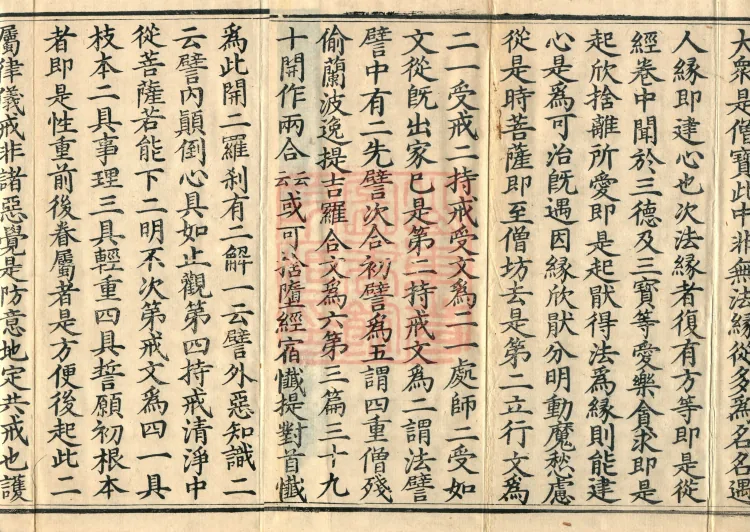 大衆是僧寶此中非無法縁從多爲名名遇
人縁即建心也次法縁者復有方等即是從
經卷中聞於三德及三寶等愛樂貪求即是
起欣捨離所愛即是起猒得法爲縁則能建
心是爲可治旣遇因縁欣猒分明動魔愁慮
從是時菩薩即至僧坊去是第二立行文爲
二一受戒二持戒受文爲二一處師二受如
文從旣出家已是第二持戒文爲二謂法譬
譬中有二先譬次合初譬爲五謂四重僧殘
偷蘭波逸提吉羅合文爲六第三篇三十九
十開作兩合云云或可墮經宿懺提對首懺
爲此開二羅刹有二解一云譬外惡知識二
云譬内顛倒心具如止觀第四持戒清淨中
從菩薩若能下二明不次第戒文爲四一具
枝本二具事理三具輕重四具誓願初根本
者即是性重前後眷屬者是方便後起此二
屬律儀戒非諸惡覺是防意地定共戒也護